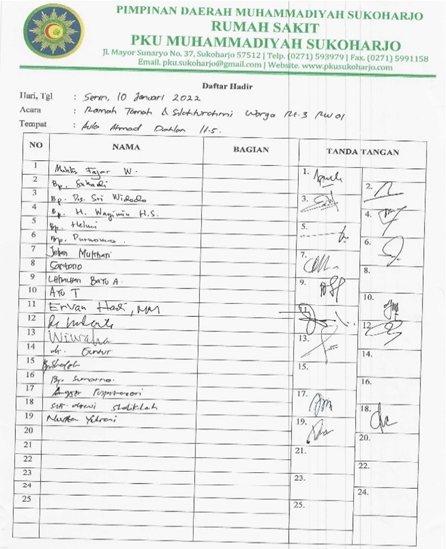 PIMPINAN DAERAH MUHAMMADIYAH SUKOHARJO
RUMAH SAKIT
PKU MUHAMMADIYAH SUKOHARJO
Jl. Mayor Sunaryo No. 37, Sukoharjo 57512 | Telp. (0271) 593979 | Fax. (0271) 5991158
Email. pku.sukoharjo@gmail.com | Website. www.pkusukoharjo.com
Daftar Hadir
Hari, Tgl : Senin, 10 Januari 2022
Acara : Ramah Tamah & Silaturrohmi Warga Rt.3 RW 01
Tempat : Aula Ahmad Dahlan Lt.5.
NO NAMA BAGIAN TANDA TANGAN
1 Fajar W. 1.
2 Bp. 2.
3 Bp. Drs. Sri Widodo 3.
4 Bp. H. Wagimin H.S. 4.
5 Bp. Helmi 5.
6 Bp. Purwanto 6.
7 Jalan 7.
8 Sartono 8.
9 Bayu A. 9.
10 Ayu T 10.
11 Ervan Hadi, MM 11.
12 12.
13 Wiwaha 13.
14 dr. Guntur 14.
15 15.
16 Bp. Sunarno.
17 Anggar 17.
18 Siti 18.
19 19.
20 20.
21 21.
22
23
24 24.
25 25.